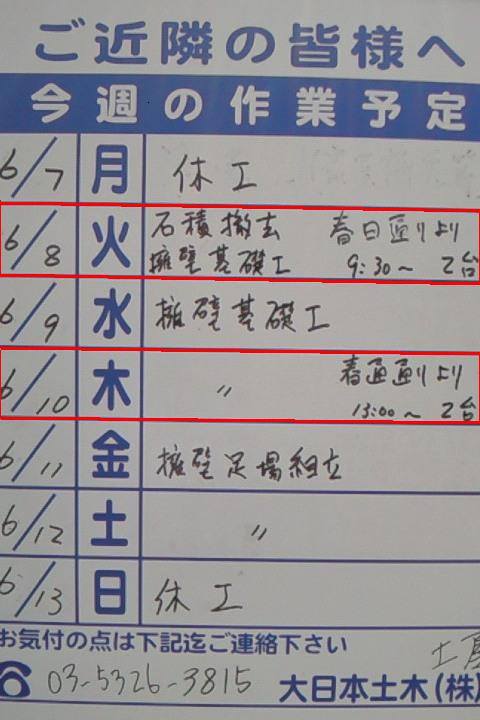 ご近隣の皆様へ
今週の作業予定
6/7 月 休工
6/8 火 石積撤去 春日通りより
擁壁基礎工 9:30～ 2台
6/9 水 擁壁基礎工
6/10 木 〃 春通通りより
13:00～ 2台
6/11 金 擁壁足場組立
6/12 土 〃
6/13 日 休工
お気付の点は下記迄ご連絡下さい
☎ 03-5326-3815 大日本土木(株)